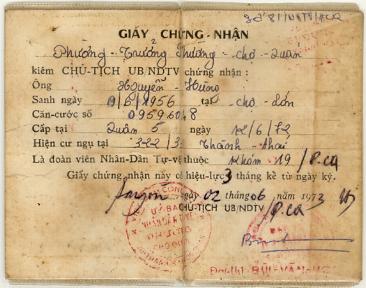 GIẤY CHỨNG-NHẬN
Phường-Trưởng Phường - chợ - Quán
kiêm CHỦ-TỊCH UB/NDTV chứng nhận :
Ông Nguyễn - Hùng
Sanh ngày 9/6/1956 tại chợ - lớn
Căn-cước số
Cấp tại Quận 5 ngày
Hiện cư ngụ tại Thành - Thái
Là đoàn viên Nhân-Dân Tự-vệ thuộc 19 / P.CQ
Giấy chứng nhận này có hiệu-lực 3 tháng kể từ ngày ký.
Saigon, ngày 02 tháng 06 năm 1973
CHỦ-TỊCH UB/NDTV P.CQ